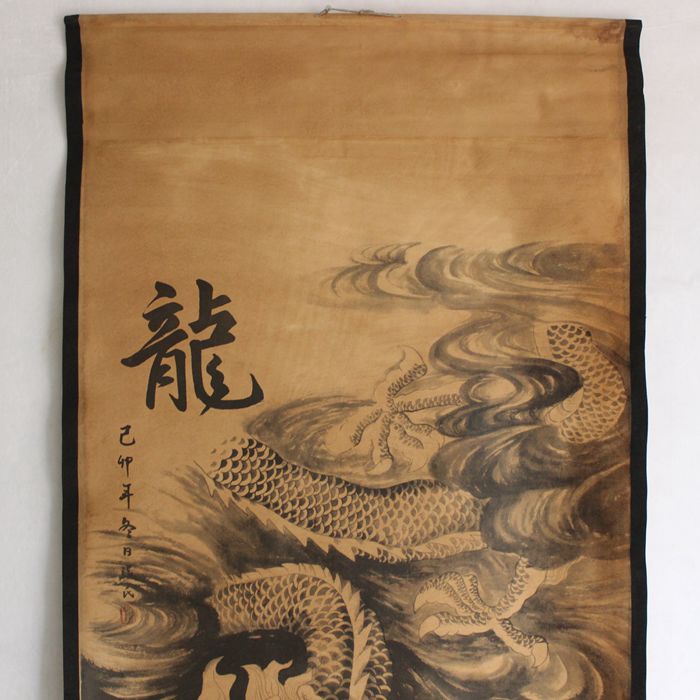 龍
己卯年冬日